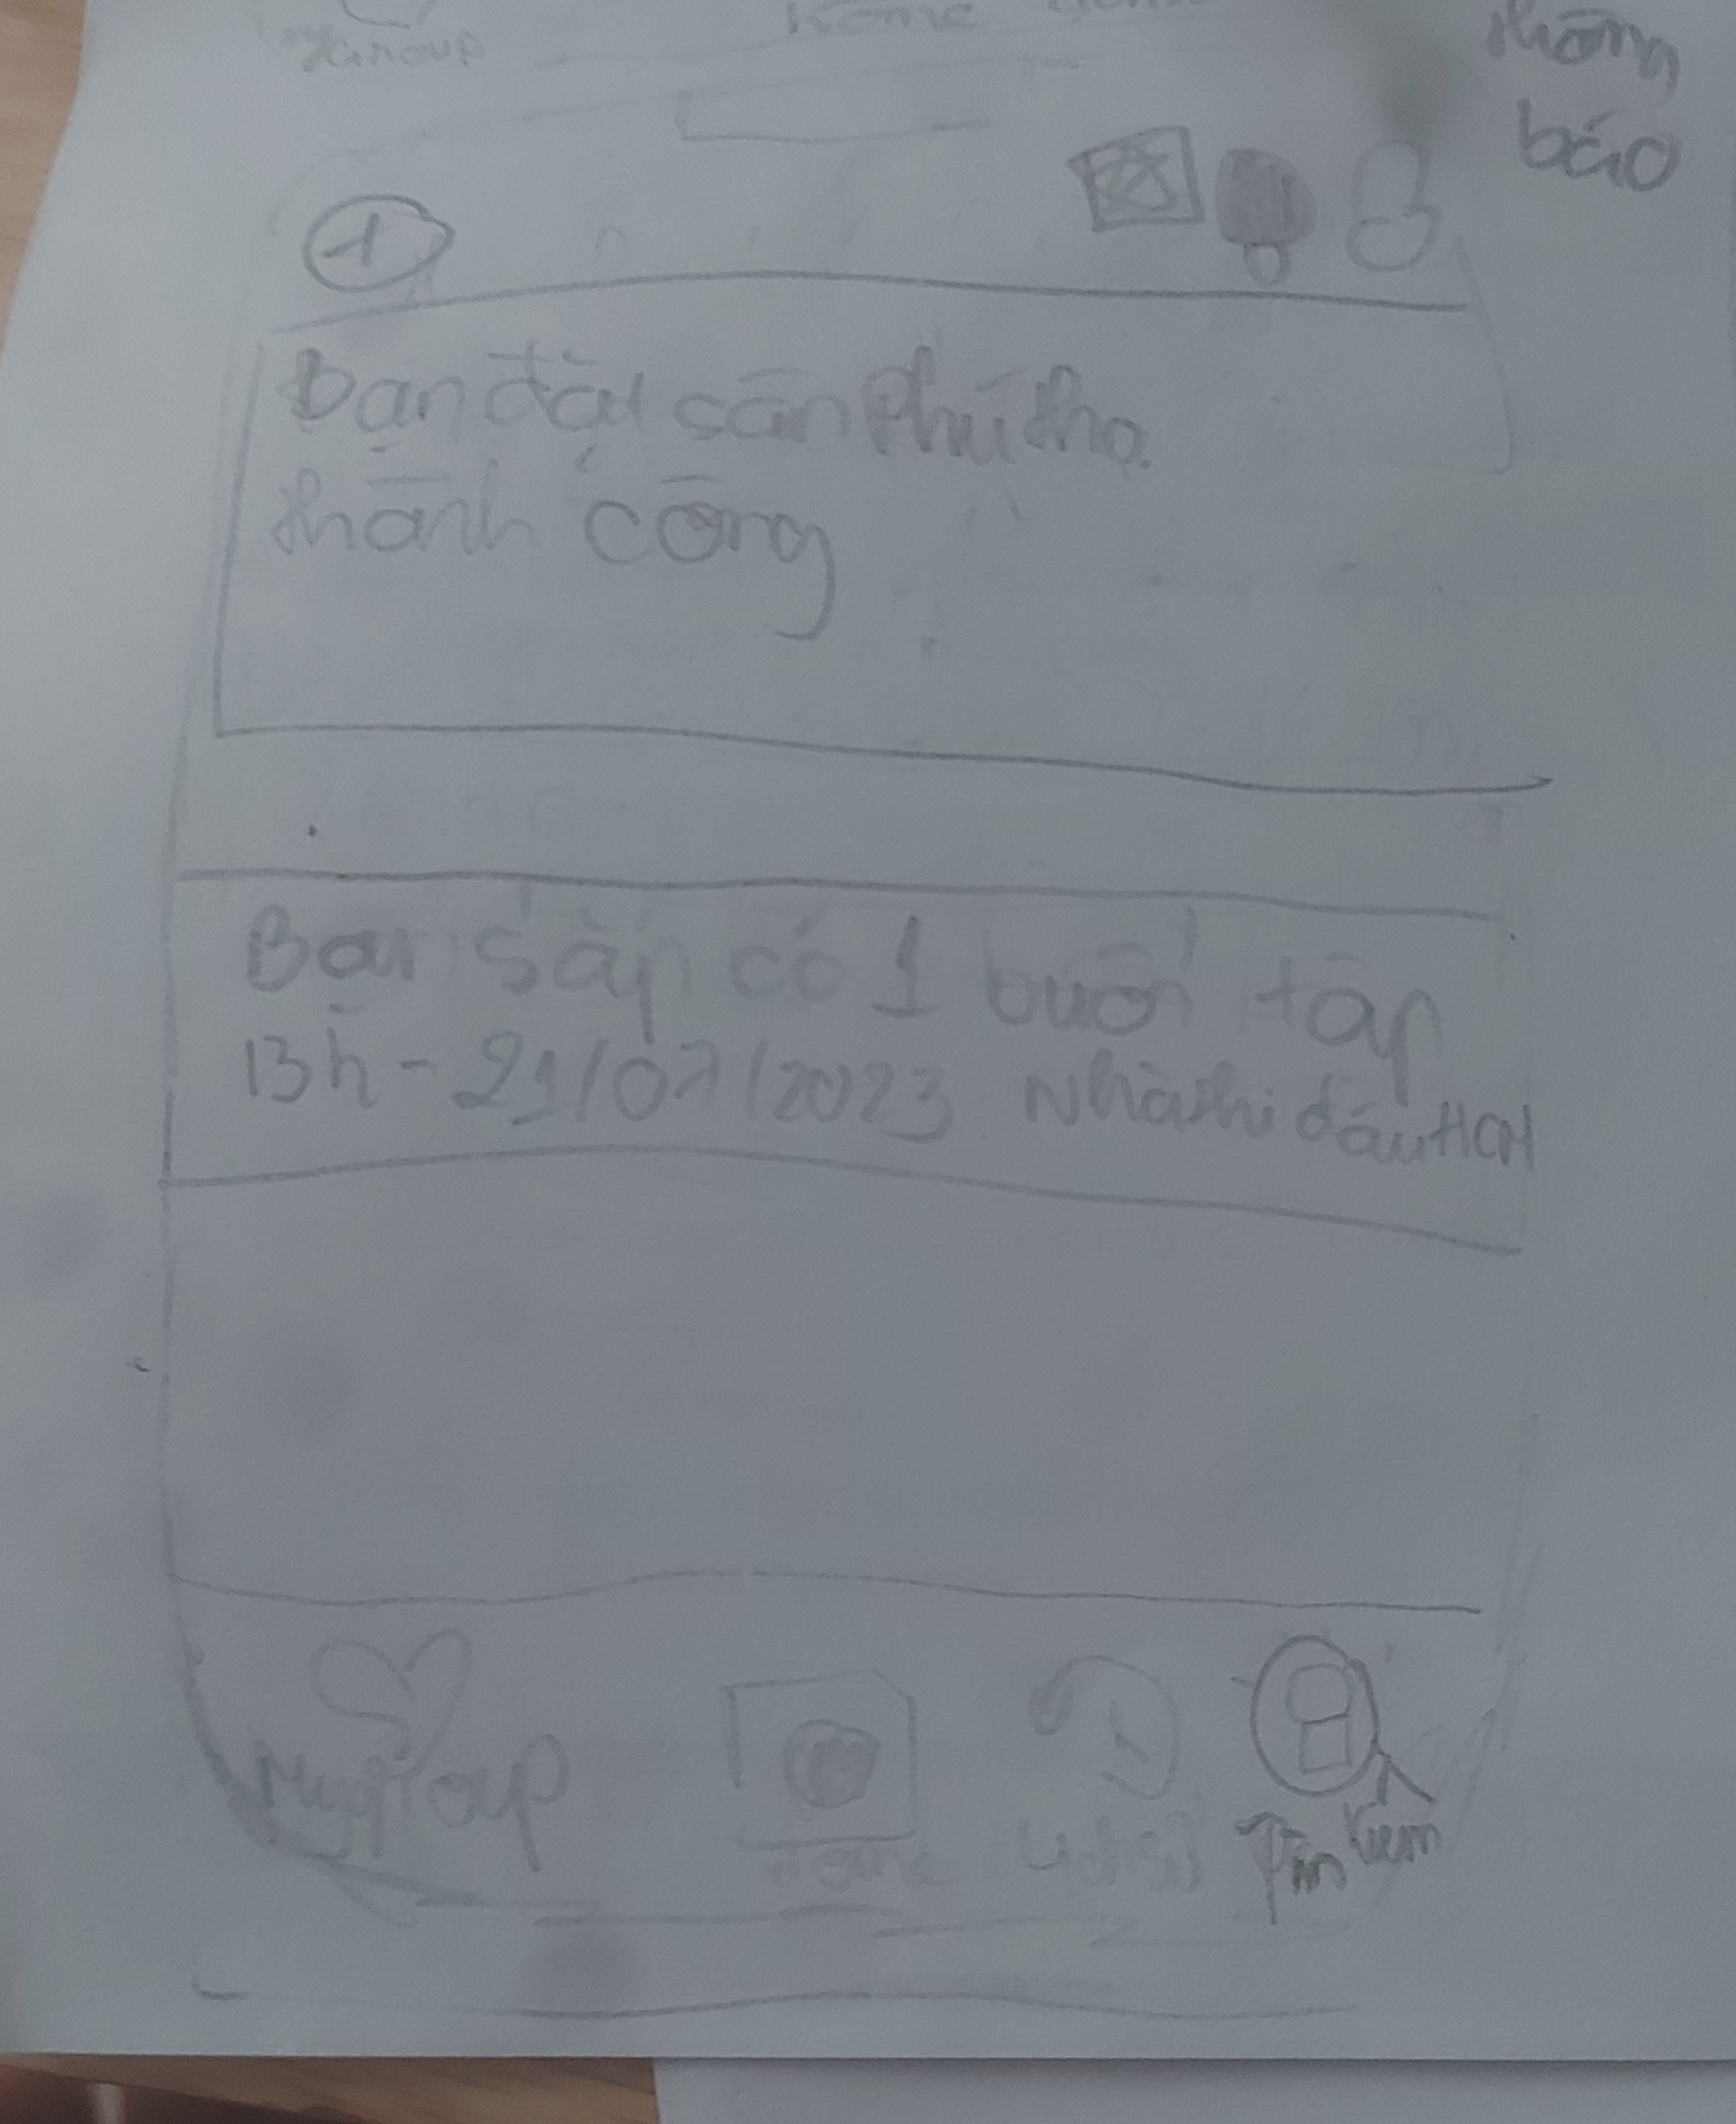 Home
thông
báo
Bạn đặt sân Phú thọ
thành công
Bạn sắp có 1 buổi tập
13h - 21/07/2023 Nhà thi đấu HCM
Mygroup
Home
Tìm kiếm